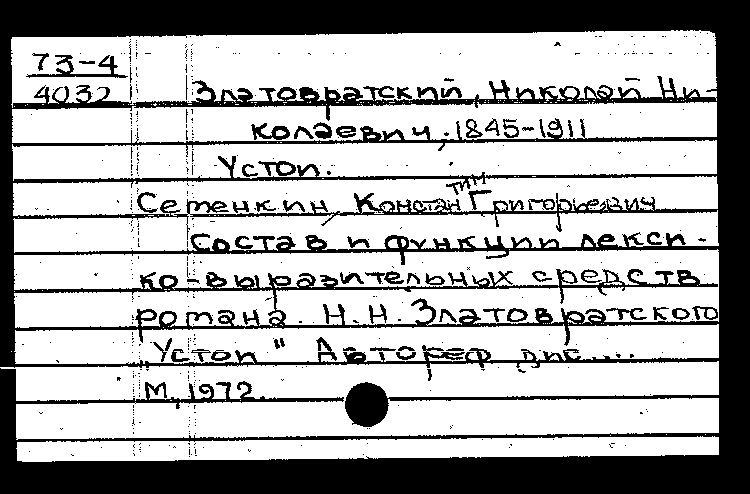 73-4
4032 Златовратский, Николай Ни-
колаевич, 1845-1911
Устои.
Семенкин, Константин Григорьевич
Состав и функции лекси-
ко-выразительных средств
романа Н.Н. Златовратского
„Устои" Автореф дис....
М, 1972.